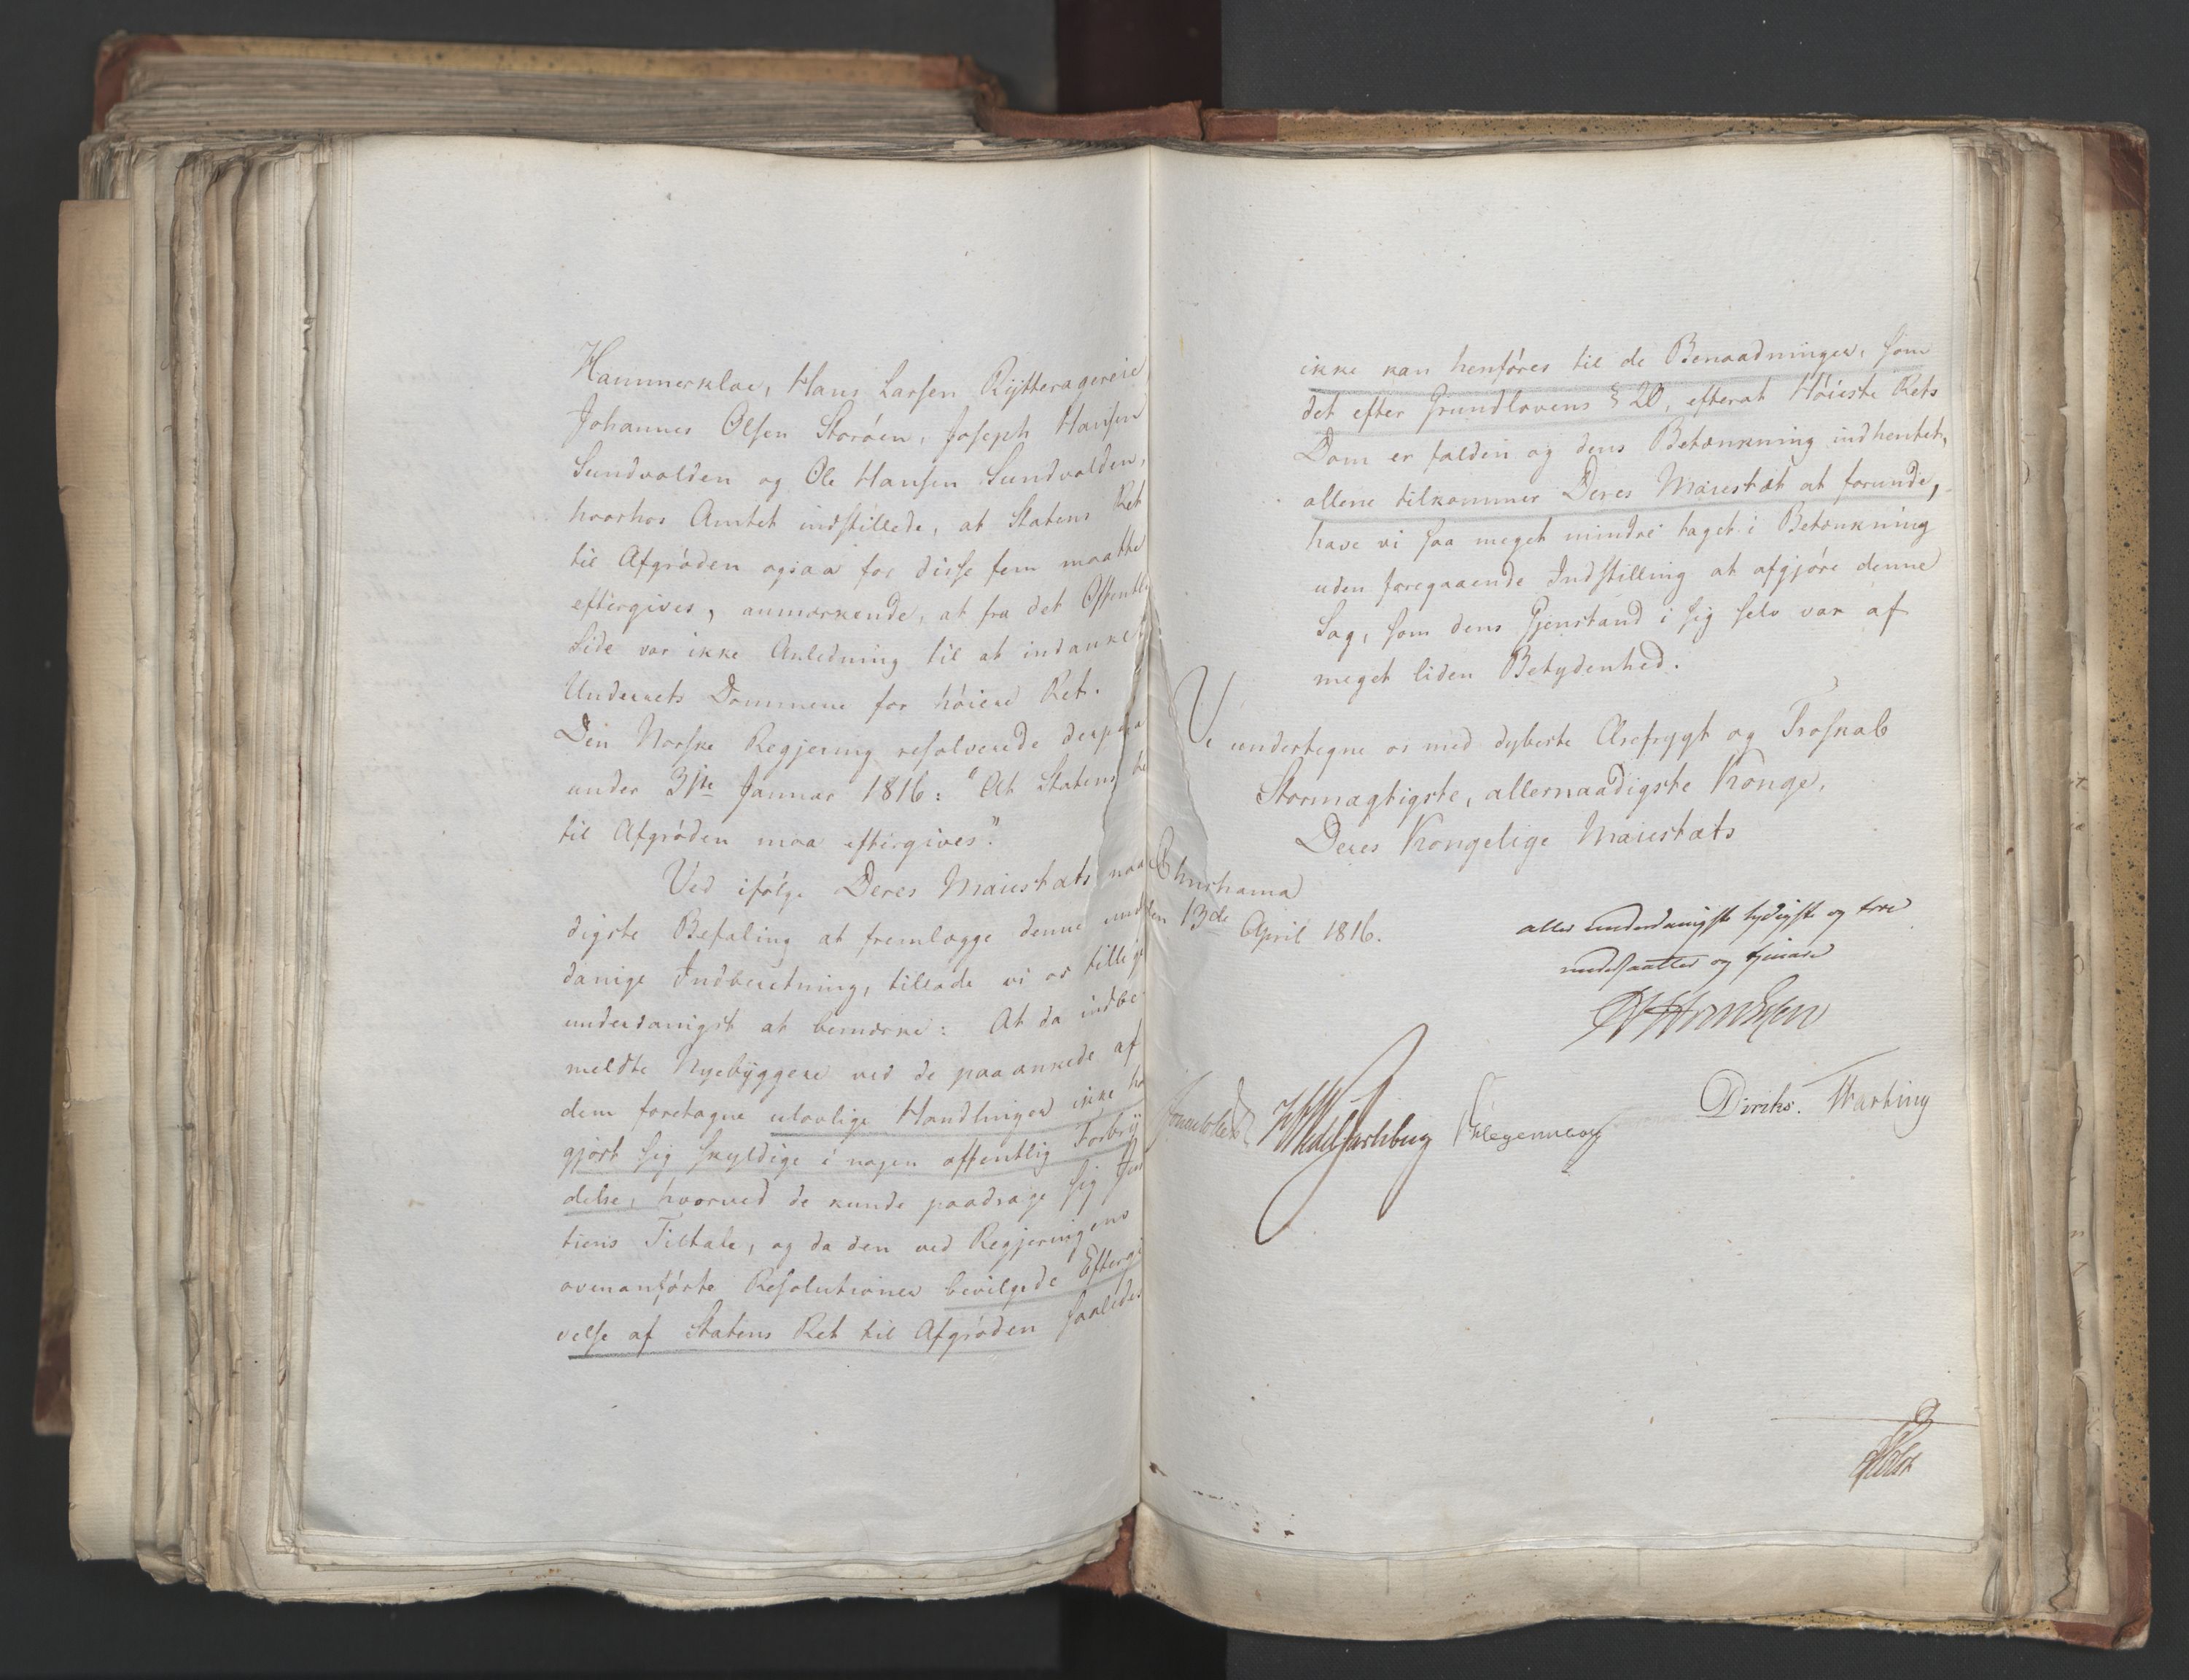 Hammerkloe, Hans Larsen Rÿtteragereie
Johannes Olsen Storöen, Joseph Hansen
Sundvolden og Ole Hansen Sundvolden,
hvorhos Amtet indstillede, at Statens Ret
til Afgröden ogsaa for disse fem maatte
eftergives, anmærkende, at fra det Offentli
Side var ikke Anledning til at indanke
Underrets Dommene for höiere Ret.
Den Norske Regjering resolverede derpaa
under 31te Januar 1816: "At Statens Re
til Afgröden maa eftergives".
Ved ifölge Deres Maiestæts naa
digste Befaling at fremlægge denne und
danige Indberetning, tillade vi os tillige
underdanigst at bemærke: At da indbe-
meldte Nyebÿggere ved de paaankede af
dem foretagne ulovlige Handlinger ikke ha
gjort sig skyldige i nogen offentlig Forbrÿ
delse, hvorved de kunde paadrage sig Jus
tiens Tiltale, og da den ved Regjeringens
ovenanförte Resolutioner bevilgede Eftergi
velse af Statens Ret til Afgröden saaledes
ikke kan henföres til de Benaadninger, som
det efter Grundlovens § 20, efterat Höieste Rets
Dom er falden og dens Betænkning indhentet,
allene tilkommer Deres Maiestæt at forunde,
have vi saa meget mindre taget i Betænkning
uden foregaaende Indstilling at afgjöre denne
Sag, som dens Gjenstand i sig selv var af
meget liden Betydenhed.
Vi undertegne os med dybeste Ærefrygt og Troskab
Stormægtigste, allernaadigste Konge,
Deres Kongelige Maiestæts
Christiania
den 13de April 1816.
aller underdanigst lydigste og troe
undersaatter og tjenare
Sommerhielm HWedelJarlsberg Krlegenmeoy
Diriks. Hartwig
Holst